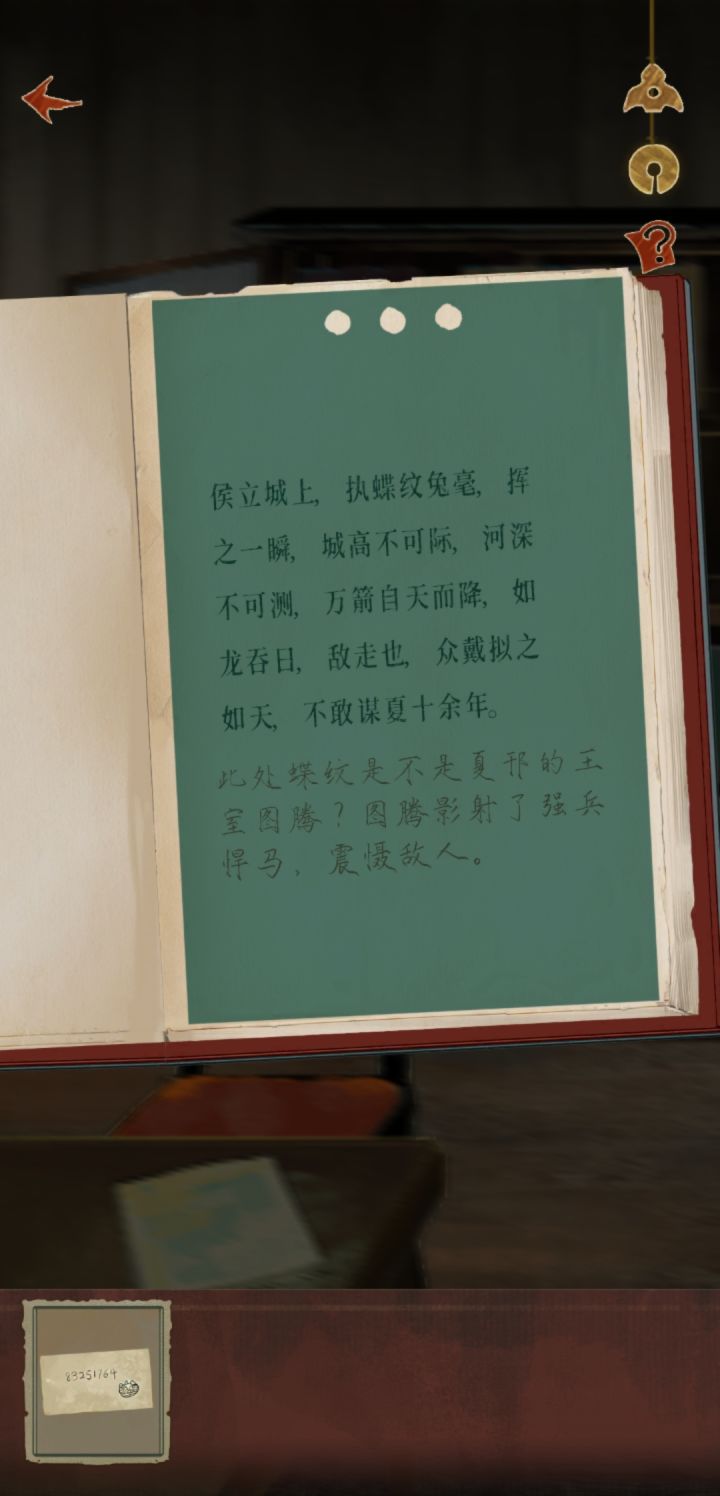 侯立城上，执蝶纹兔毫，挥
之一瞬，城高不可际，河深
不可测，万箭自天而降，如
龙吞日，敌走也，众戴拟之
如天，不敢谋夏十余年。
此处蝶纹是不是夏邗的王
室图腾？图腾影射了强兵
悍马，震慑敌人。
83251764